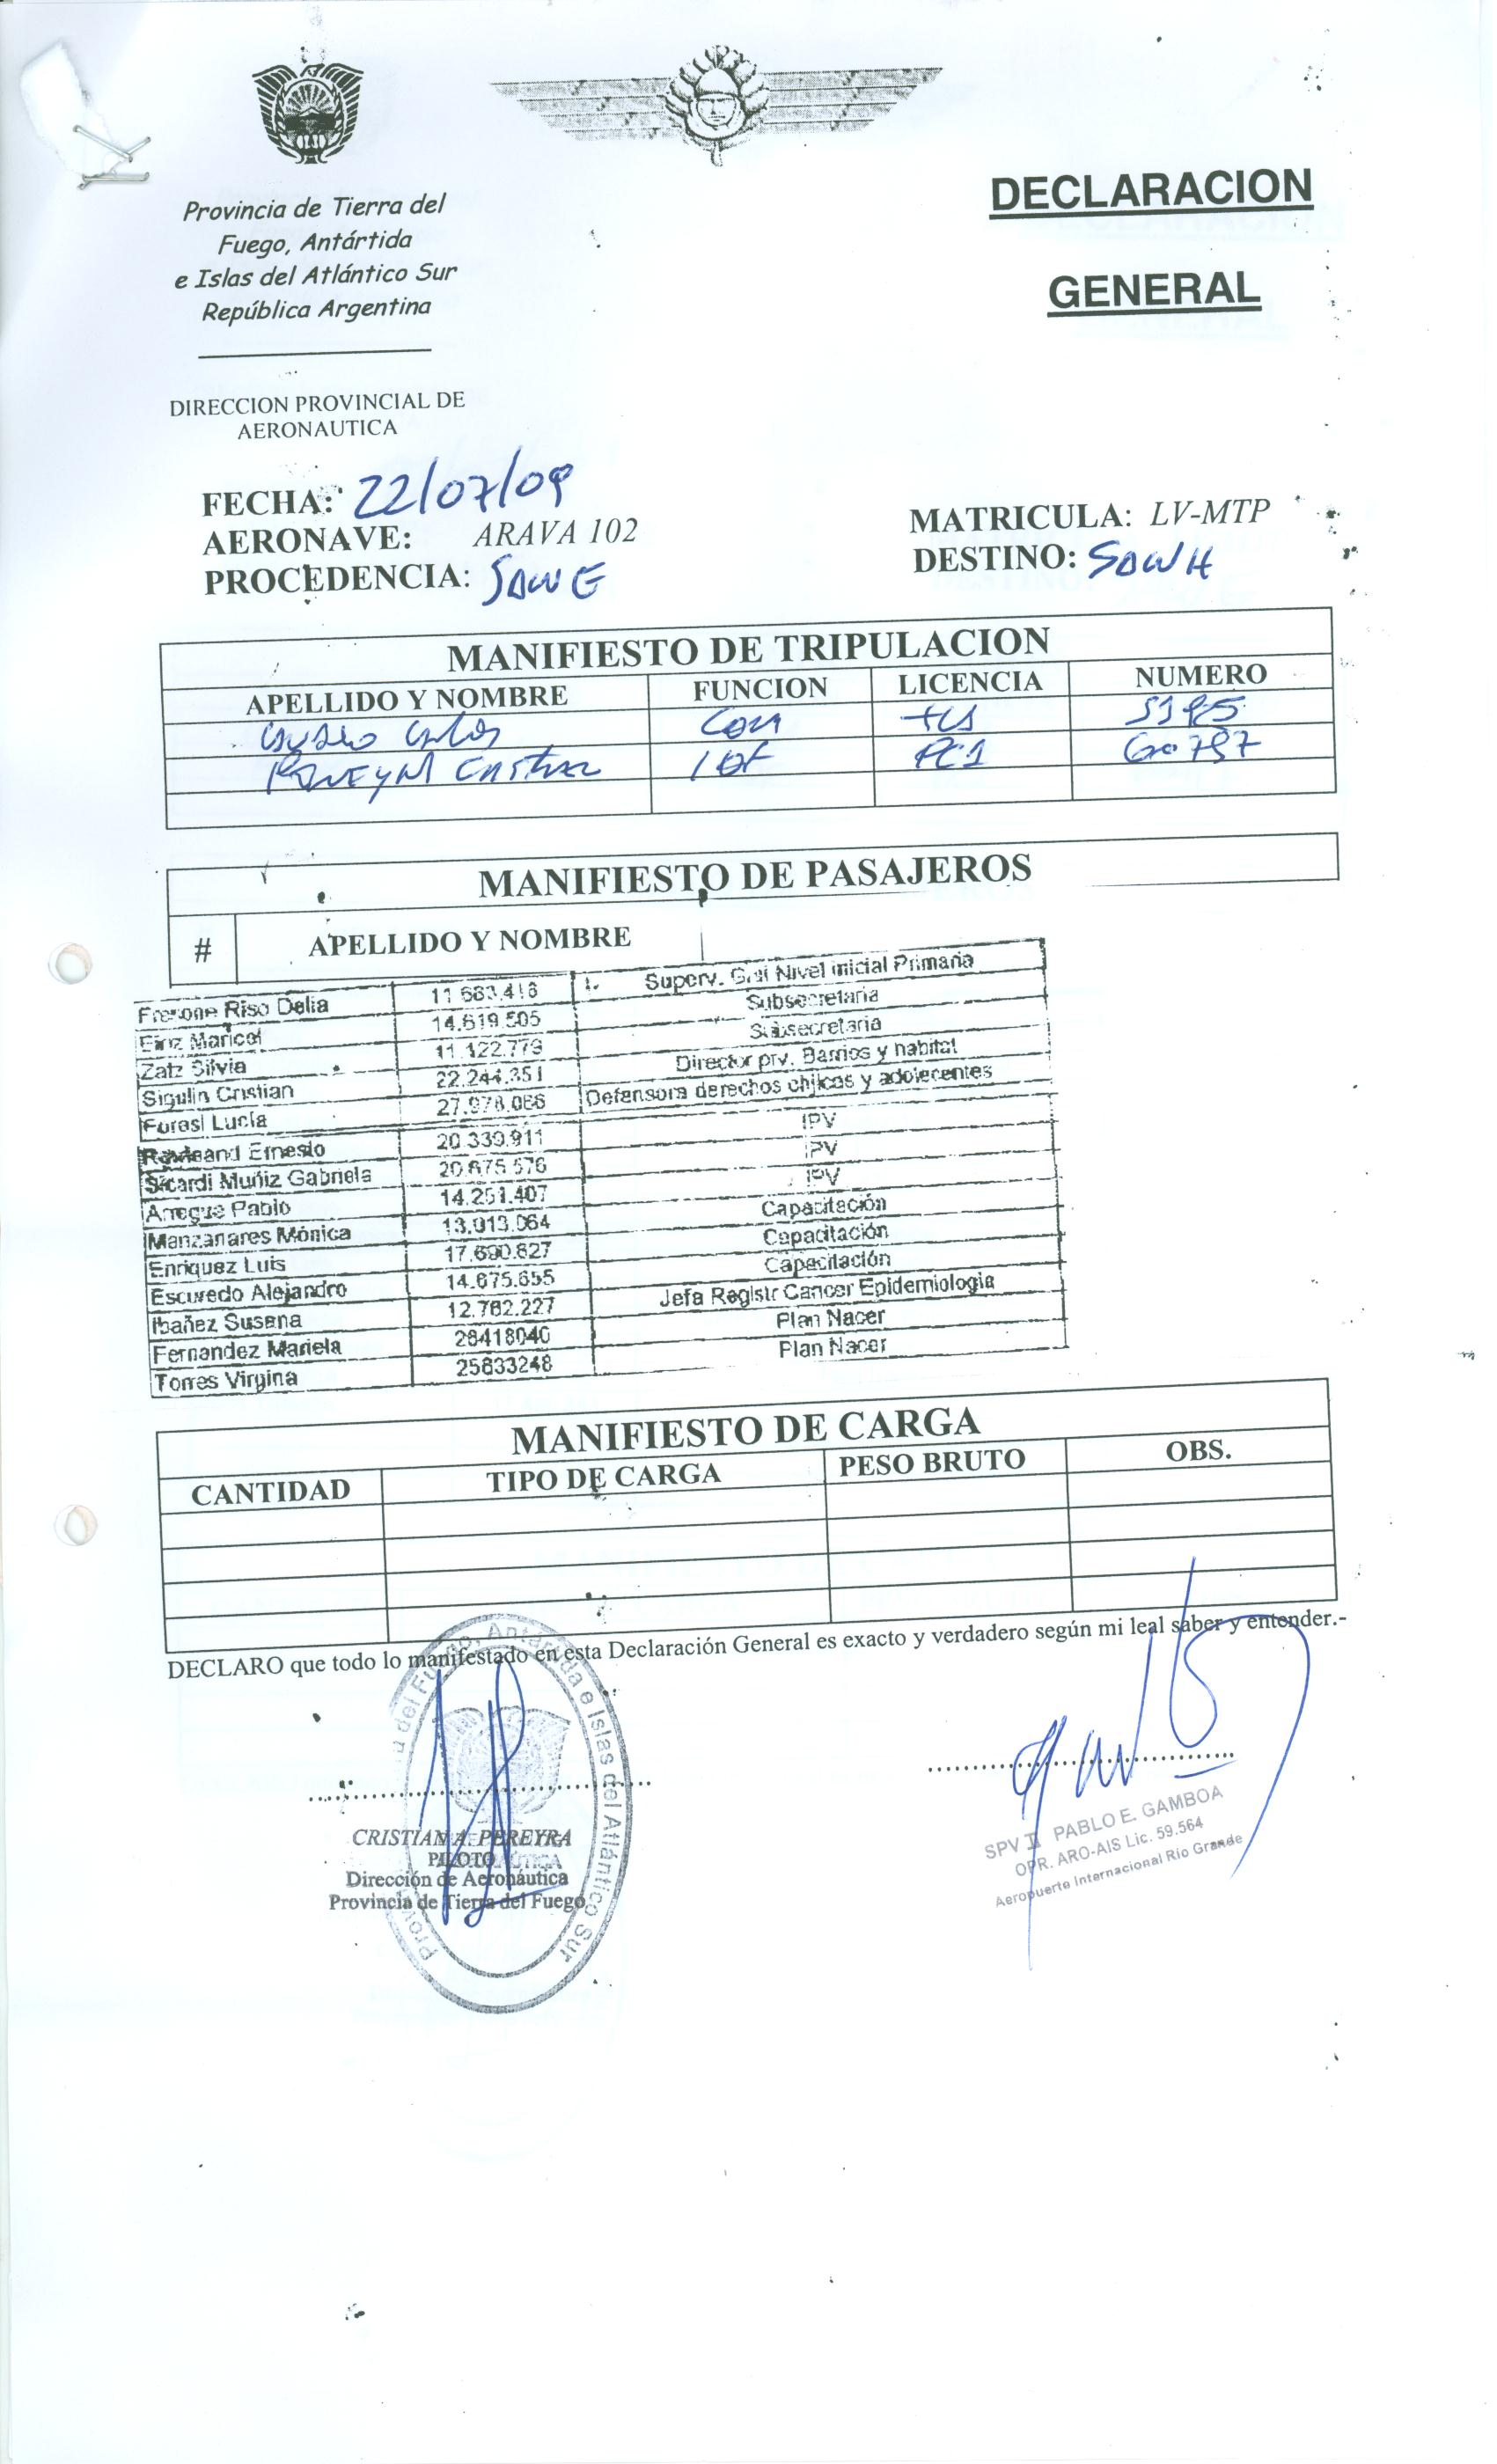 Provincia de Tierra del
Fuego, Antártida
e Islas del Atlántico Sur
República Argentina
DECLARACION
GENERAL
DIRECCION PROVINCIAL DE
AERONAUTICA
FECHA: 22/07/09
AERONAVE: ARAVA 102
MATRICULA: LV-MTP
PROCEDENCIA: SAWE
DESTINO: SAWH
MANIFIESTO DE TRIPULACION
APELLIDO Y NOMBRE FUNCION LICENCIA NUMERO
MANIFIESTO DE PASAJEROS
# APELLIDO Y NOMBRE
Riso Delia Superv. Gral Nivel inicial Primaria
14.619.505 Subsecretaria
Zatz Silvia 11.122.779 Subsecretaria
Sigulin Cristian 22.244.351 Director prv. Barrios y habitat
Lucía 27.978.066 Defensora derechos chjicos y adolecentes
Ernesto 20.339.911 IPV
Sicardi Muñiz Gabriela 20.675.576 IPV
Pablo 14.251.407 IPV
Manzanares Mónica 13.013.064 Capacitación
Enriquez Luis 17.690.827 Capacitación
Escuredo Alejandro 14.675.655 Capacitación
Ibañez Susana 12.762.227 Jefa Registr Cancer Epidemiologia
Fernandez Mariela 28418040 Plan Nacer
Torres Virgina 25633248 Plan Nacer
MANIFIESTO DE CARGA
CANTIDAD TIPO DE CARGA PESO BRUTO OBS.
DECLARO que todo lo manifestado en esta Declaración General es exacto y verdadero según mi leal saber y entender.-
del Fuego, Antártida e Islas del Atlántico Sur
CRISTIAN A. PEREYRA
PILOTO
Dirección de Aeronáutica
Provincia de Tierra del Fuego
SPV II PABLO E. GAMBOA
OPR. ARO-AIS Lic. 59.564
Aeropuerto Internacional Río Grande